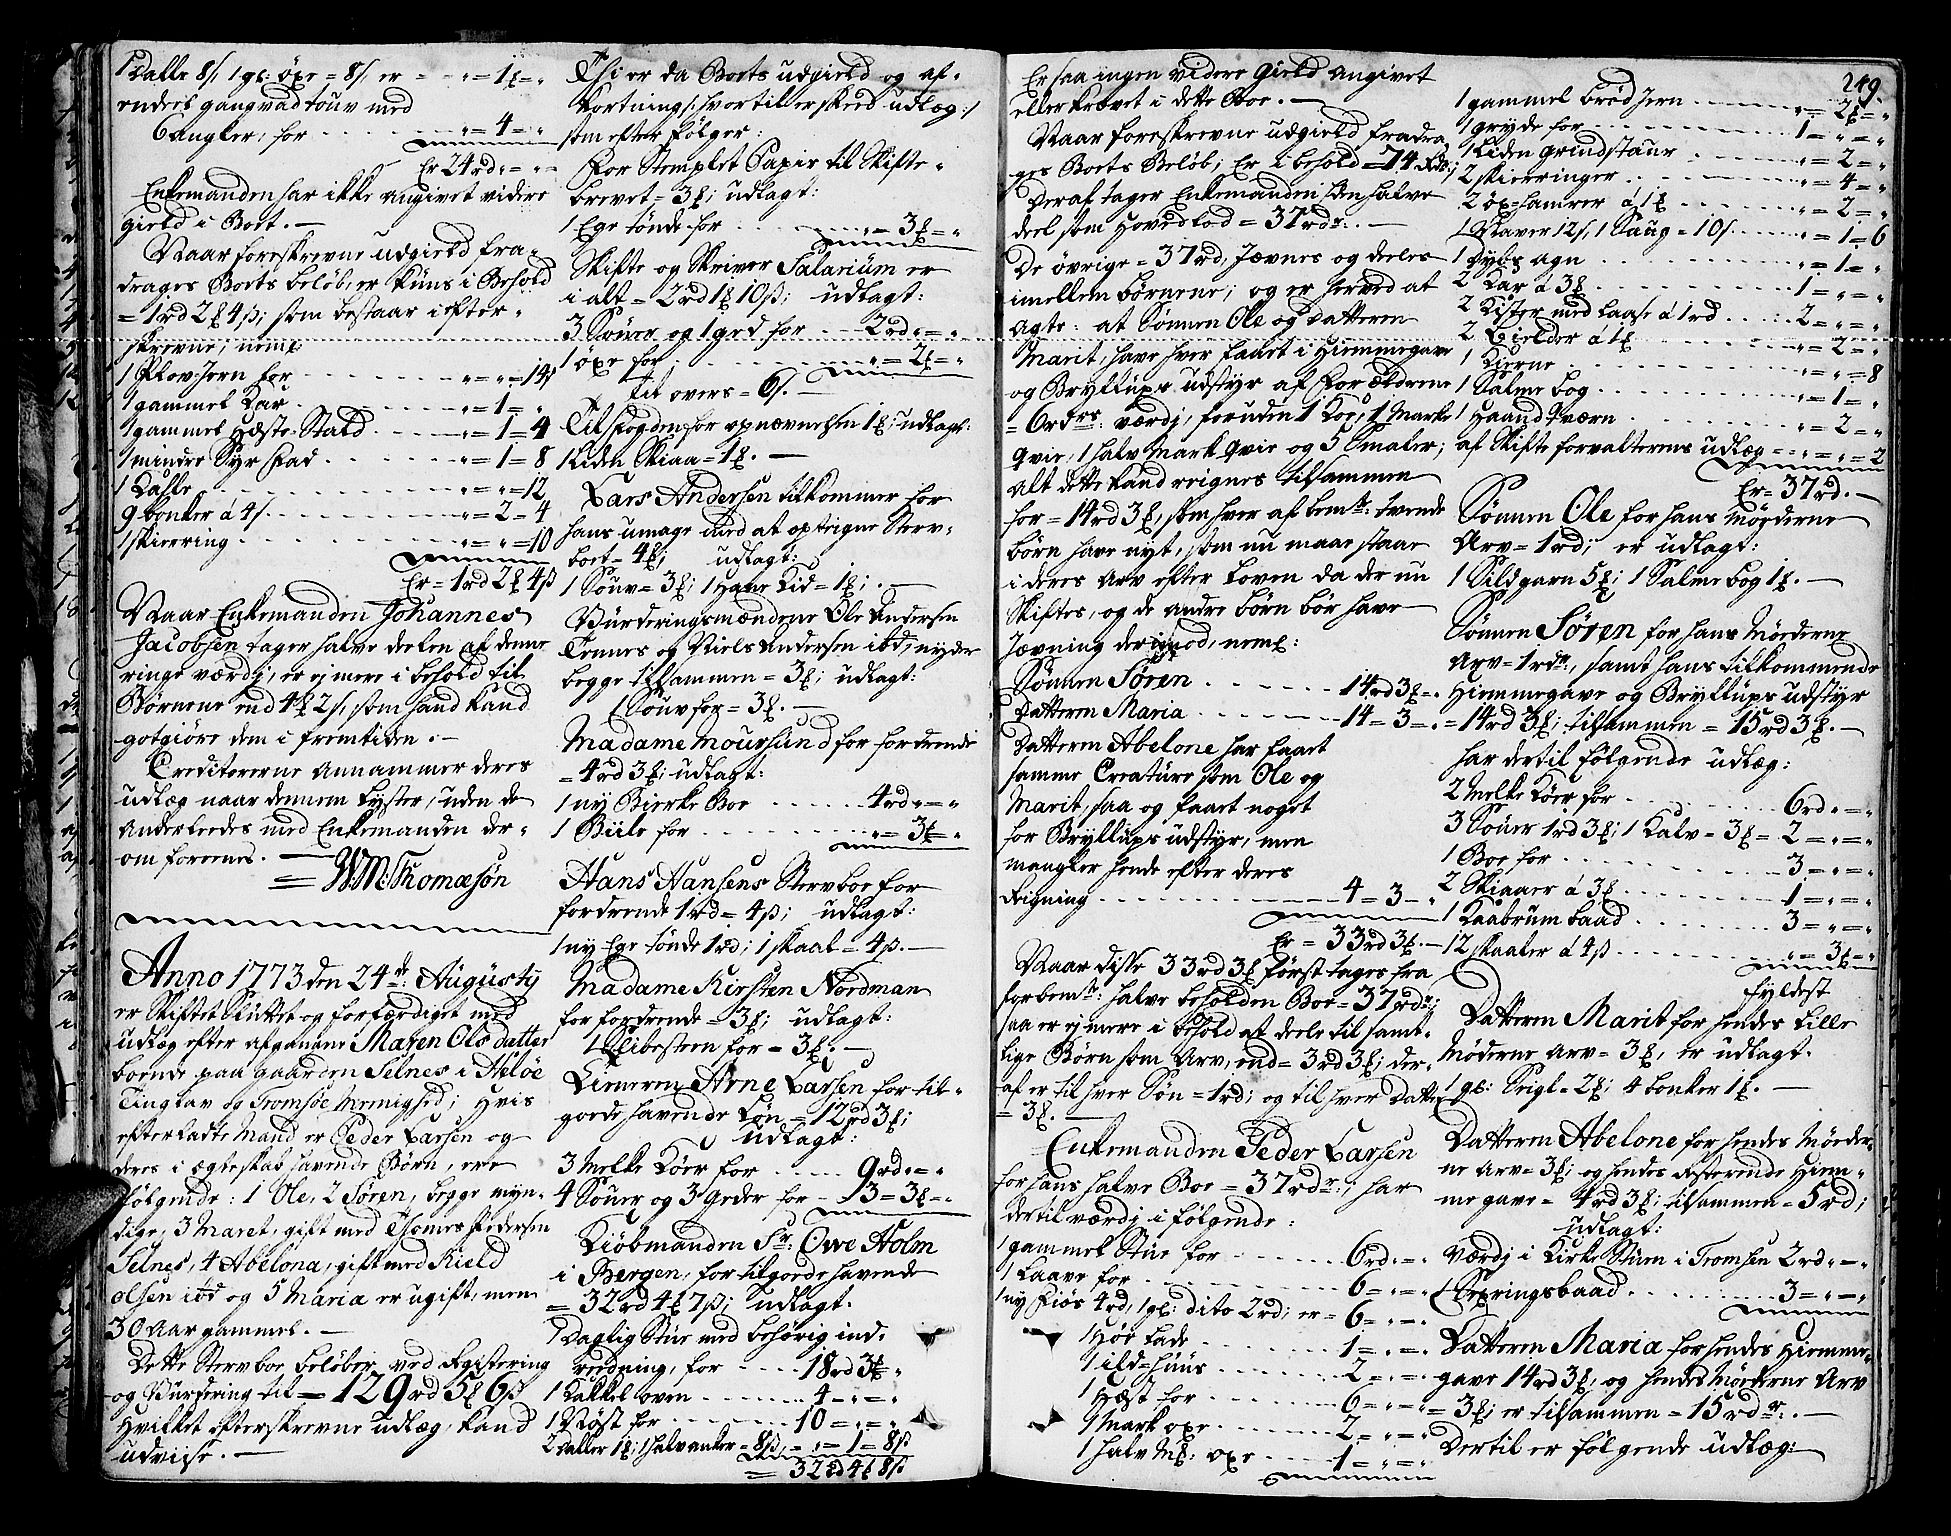 1 Dalle 8/, 1 gl: öxe = 8/, er - - „ = 1 ℔ = „
enders gangvad touv med
6 angler, for . . . . . . „ = 4 = „
Er 24 rd „ = „
Enkemanden har ikke angivet videre
gield i Boet. —
Naar foreskrevne udgield fra-
drages Boets beløb, er kuns i Behold
= 1 rd 2 ℔ 4 ß; som bestaar i efter-
skrevne; neml:
1 Plov Jern for . . . . . „ = „ = 14 ß
1 gammel Kar . . . . . „ = 1 = „
1 gammel Heste-Stald . . . . „ = 1 = 4
1 mindre Syr fad . . . . „ = 1 = 8
1 Dalle . . . . . „ = „ = 12
9 bonker á 4/. . . . . „ = 2 = 4
1 skierring . . . . . „ = „ = 10
Er = 1 rd 2 ℔ 4 ß
Naar Enkemanden Johannes
Jacobsen tager halve deelen af denne
ringe værdj, er ej mere i behold til
Børnene end 4 ℔ 2/, som hand kand
gotgiøre dem i fremtiden. —
Creditorerne annammer deres
udlæg naar dennem lyster, uden de
anderleedes med Enkemanden der-
om foreenes. —
WM: Thomæsøn
Anno 1773 den 24de: Augustij
er Skiftet sluttet og forfærdiget med
udlæg efter afgangne Maren Ols datter
boende paa gaarden Selnes i Helöe
Tinglav og Tromsöe Menighed; Hvis
efterladte Mand er Peder Larsen og
deres i ægteskab havende Børn, ere
følgende: 1 Ole, 2 Søren, begge myn-
dige, 3 Maret, gift med Thomes Pedersen
Selnes, 4 Abelona, gift med Kield
Olsen ibd og 5 Maria er ugift, men
30 Aar gammel. —
Dette Sterv boe beløber ved Registering
og Vurdering til = 129 rd 5 ℔ 6 ß
hvilket efterskrevne udlæg kand
udvise. —
Thi er da Boets udgield og af-
kortning/: hvortil er skeed udlæg :/
som efter følger:
For Stemplet Papir til Skifte-
brevet = 3 ℔; udlagt:
1 Ege tønde for . . . . „ = 3 ℔ = „
Skifte og Skriver Salarium er
i alt = 2 rd 1 ℔ 10 ß; udlagt:
3 Souer og 1 ged for . . 2 rd „ = „
1 öxe for . . . . „ = 2 ℔ = „
til overs = 6/. —
Til fogden for opnævnelsen 1 ℔; udlagt:
1 liden Skiaa = 1 ℔. —
Lars Andersen tilkommer for
hans umage med at opteigne Sterv-
boet = 4 ℔; udlagt:
1 Souv = 3 ℔; 1 Hane Kid = 1 ℔; . —
Vurderingsmændene Ole Andersen
Tennes og Niels Andersen ibd, nyder
begge tilsammen = 3 ℔; udlagt:
1 Souv for = 3 ℔. —
Madame Moursund for fordrende
= 4 rd 3 ℔; udlagt:
1 ny Bierke Boe . . . . 4 rd „ = „
1 Biile for . . . . „ = 3 ℔ = „
Hans Hansens Stervboe for
fordrende 1 rd = 4 ß; udlagt:
1 ny Ege tønde 1 rd; 1 skaal = 4 ß. —
Madame Kirsten Nordman
for fordrende = 3 ℔; udlagt:
1 Slibesteen for = 3 ℔. —
Tieneren Arne Larsen for til-
gode havende Løn = 12 rd 3 ℔;
udlagt:
3 Melke Köer for . . . 9 rd „ = „
4 Souer og 3 Geder for - 3 = 3 ℔ = „
Kiöbmanden Sr: Owe Holm
i Bergen, for tilgode havende
= 32 rd 4 ℔ 7 ß; udlagt.
1 Daglig Stue med behörig ind-
reedning, for . . . 18 rd 3 ℔ „
1 Kakkel oven . . . . 4 = „ = „
1 Nøst for . . . . 10 = „ = „
2 Daller 1 ℔; 1 halv anker = 8 ß, „ = 1 = 8 ß
= 32 rd 4 ℔ 8 ß
249.
Er saa ingen videre gield angivet
eller krævet i dette Boe. —
Naar foreskrevne udgield fradra-
ges Boets Beløb, Er i behold = 74 Rd:/
Deraf tager Enkemanden den halve
deel som Hovedlod = 37 rdr. —
De övrige = 37 rd, Jævnes og deeles
imellem börnene; og er herved at
agte: at Sönnen Ole og datteren
Marit, have hver faaet i Hiemmegave
og Bryllups udstyr af Forældrene
= 6 rdrs: værdj, foruden 1 Koe, 1 Marke
qvie, 1 halv Mark qvie og 5 Smaler;
alt dette kand reignes tilsammen
for = 14 rd 3 ℔, som hver af bemte: tvende
börn have nyt, som nu maae staae
i deres Arv efter Loven da der nu
Skiftes, og de andre börn bör have
Jævning derimod, neml:
Sönnen Sören . . . . 14 rd 3 ℔ = .
Datteren Maria . . . . 14 = 3 = .
Datteren Abelone har faaet
samme Creature som Ole og
Marit, saa og faaet noget
for Bryllups udstyr, men
mangler hende efter deres
Reigning . . . . 4 = 3 = „
Er = 33 rd 3 ℔. —
Naar disse 33 rd 3 ℔ först tages fra
forbemte: halve beholden Boe = 37 rdr:;
saa er ej mere i behold at deele til samt-
lige Börn som Arv, end = 3 rd 3 ℔; der-
af er til hver Sön = 1 rd; og til hver Datter
= 3 ℔. —
Enkemanden Peder Larsen
for hans halve Boe = 37 rdr:; har
dertil værdj i følgende:
1 gammel Stue for . . . 6 rd „ = „
1 Laave for . . . . 6 = „ = „
1 ny Fiös 4 rd, 1 gl: dito 2 rd; er = 6 = „ = „
1 Höe Lade . . . . 1 = „ = „
1 ild-Huus . . . . 2 = „ = „
1 Hæst for . . . . 6 = „ = „
1 Mark oxe . . . . 2 = „ = „
1 halv Mk: oxe . . . . 1 = „ = „
1 gammel Brød Jern . . . . „ = 2 ℔ = „
1 gryde for . . . . 1 = „ = „
1 Liden grindstaur . . . . „ = 2 = „
2 skierringer . . . . „ = 4 = „
2 öx-hamrer á 1 ℔ . . . . „ = 2 = „
1 Naver 12/, 1 Saug = 10/. . . „ = 1 = 6
1 Dybs agn . . . . „ = 1 = „
2 Kar á 3 ℔ . . . . 1 = „ = „
2 Kister med Laase á 1 rd . . . 2 = „ = „
2 Bielder á 1 ℔ . . . . „ = 2 = „
1 Kierne . . . . „ = „ = 8
1 Salme bog . . . . „ = 1 = „
1 Haand qværn . . . . „ = 2 = „
af Skifte forvalterens udlæg = „ = „ = 2
Er = 37 rd. —
Sönnen Ole for hans Möderne
Arv = 1 rd; er udlagt:
1 Sildgarn 5 ℔; 1 Salme bog 1 ℔. —
Sönnen Sören for hans Möderne
Arv = 1 rdr., samt hans tilkommende
Hiemmegave og Bryllups udstyr
= 14 rd 3 ℔; tilsammen = 15 rd 3 ℔. —
har dertil følgende udlæg:
2 Melke Köer for . . . . 6 rd „ = „
3 Souer 1 rd 3 ℔; 1 Kalv = 3 ℔ = 2 = „ = „
1 Boe for . . . . 3 = „ = „
2 Skiaaer á 3 ℔ . . . . 1 = „ = „
1 Kaabrum baad . . . . 3 = „ = „
12 skaaler á 4 ß . . . . „ = 3 ℔ = „
fyldest
Datteren Marit for hendes lille
Möderne Arv = 3 ℔, er udlagt.
1 gl: Seigl = 2 ℔; 4 bonker 1 ℔. —
Datteren Abelone for hendes Möder-
ne Arv = 3 ℔; og hendes resterende Hiem-
me gave = 4 rd 3 ℔; tilsammen = 5 rd;
udlagt:
værdj i Kirke Stuen i Tromsen 2 rd „ = „
1 Sexringsbaad . . . . 3 = „ = „
Datteren Maria for hendes Hiemme-
gave 14 rd 3 ℔, og hendes Möderne Arv
= 3 ℔; er tilsammen = 15 rdr. —
Dertil er følgende udlæg: